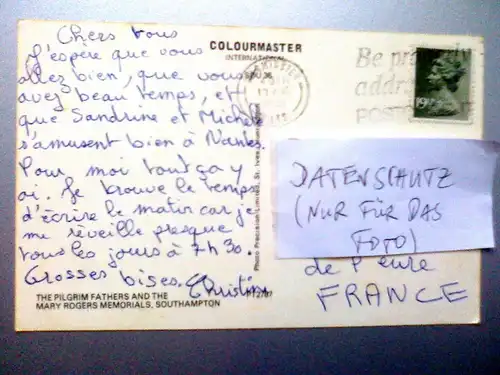 Chers tous
J'espère que vous
allez bien, que vous
avez beau temps, et
que Sandrine et Michèle
s'amusent bien à Nantes.
Pour moi tout ça y
Je trouve le temps
d'écrire le matin car je
me réveille presque
tous les jours à 7h30.
Grosses bises. Christine
THE PILGRIM FATHERS AND THE
MARY ROGERS MEMORIALS, SOUTHAMPTON
COLOURMASTER
INTERNATIONAL
Photo Precision Limited, St. Ives
Be properly
addre
POST
DATENSCHUTZ
(NUR FÜR DAS
FOTO)
de l'eure
FRANCE